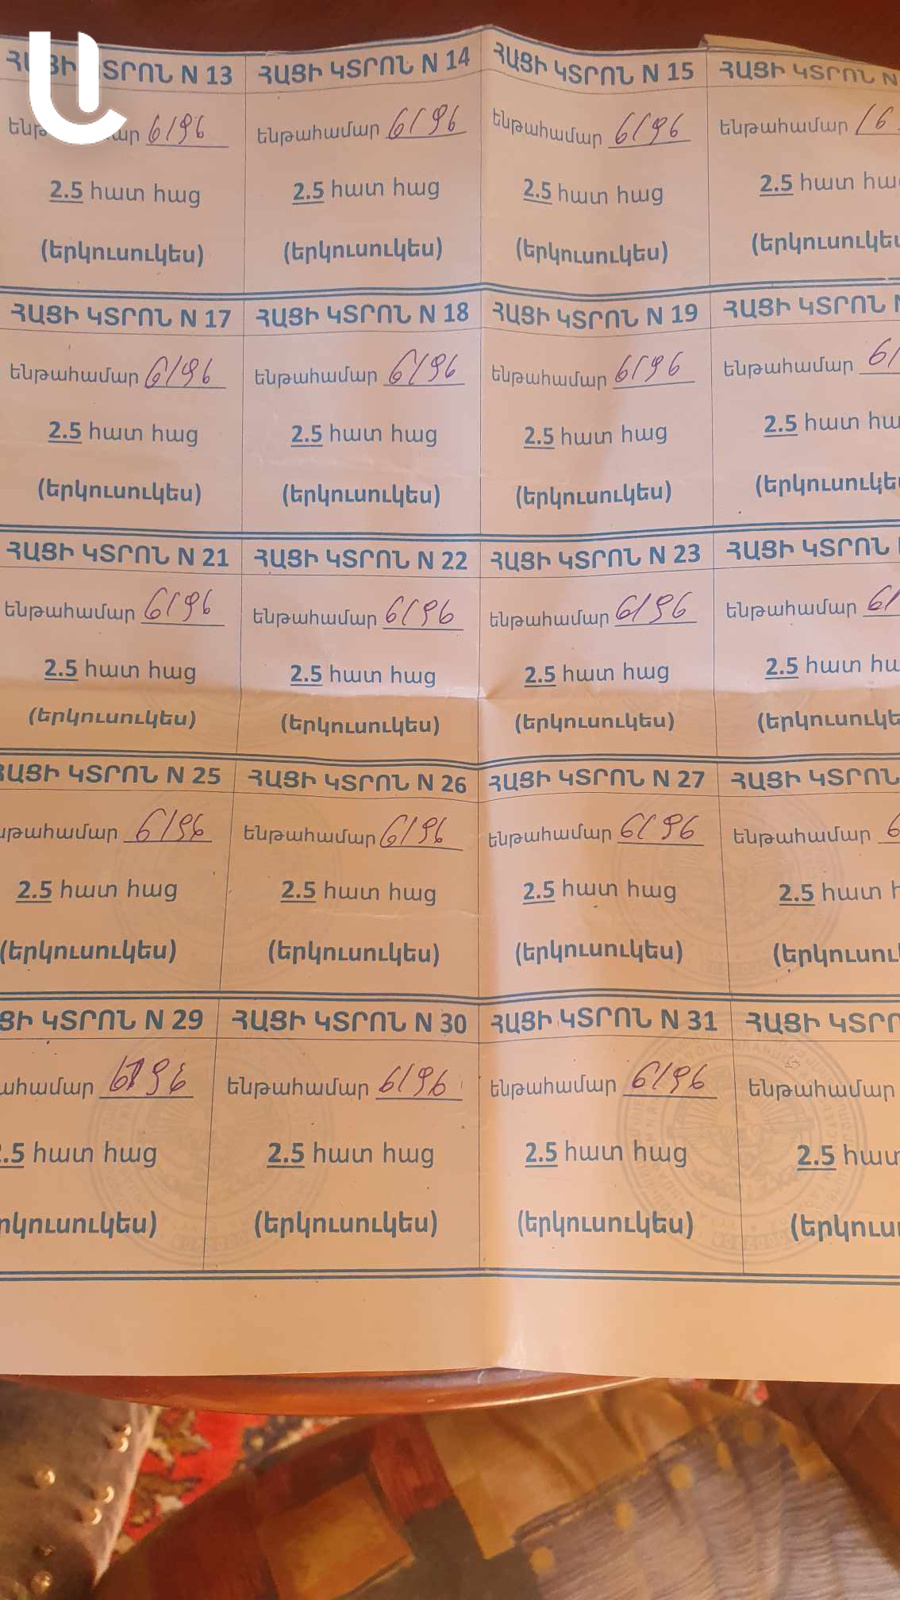 ՀԱՑԻ ԿՏՐՈՆ N 13 ՀԱՑԻ ԿՏՐՈՆ N 14 ՀԱՑԻ ԿՏՐՈՆ N 15 ՀԱՑԻ ԿՏՐՈՆ N
ենթահամար 6/96 ենթահամար 6/96 ենթահամար 6/96 ենթահամար
2.5 հատ հաց 2.5 հատ հաց 2.5 հատ հաց 2.5 հատ
(երկուսուկես) (երկուսուկես) (երկուսուկես)
ՀԱՑԻ ԿՏՐՈՆ N 17 ՀԱՑԻ ԿՏՐՈՆ N 18 ՀԱՑԻ ԿՏՐՈՆ N 19 ՀԱՑԻ ԿՏՐՈՆ
ենթահամար 6/96 ենթահամար 6/96 ենթահամար 6/96 ենթահամար 6/
2.5 հատ հաց 2.5 հատ հաց 2.5 հատ հաց 2.5 հատ
(երկուսուկես) (երկուսուկես) (երկուսուկես)
ՀԱՑԻ ԿՏՐՈՆ N 21 ՀԱՑԻ ԿՏՐՈՆ N 22 ՀԱՑԻ ԿՏՐՈՆ N 23 ՀԱՑԻ ԿՏՐՈՆ
ենթահամար 6/96 ենթահամար 6/96 ենթահամար 6/96 ենթահամար 6/
2.5 հատ հաց 2.5 հատ հաց 2.5 հատ հաց 2.5 հատ
(երկուսուկես) (երկուսուկես) (երկուսուկես)
ՀԱՑԻ ԿՏՐՈՆ N 25 ՀԱՑԻ ԿՏՐՈՆ N 26 ՀԱՑԻ ԿՏՐՈՆ N 27 ՀԱՑԻ ԿՏՐՈՆ
ենթահամար 6/96 ենթահամար 6/96 ենթահամար 6/96 ենթահամար 6
2.5 հատ հաց 2.5 հատ հաց 2.5 հատ հաց 2.5
(երկուսուկես) (երկուսուկես) (երկուսուկես)
ԿՏՐՈՆ N 29 ՀԱՑԻ ԿՏՐՈՆ N 30 ՀԱՑԻ ԿՏՐՈՆ N 31 ՀԱՑԻ
6/96 ենթահամար 6/96 ենթահամար 6/96 ենթահամար
2.5 հատ հաց 2.5 հատ հաց 2.5 հատ հաց 2.5 հատ
(երկուսուկես) (երկուսուկես)